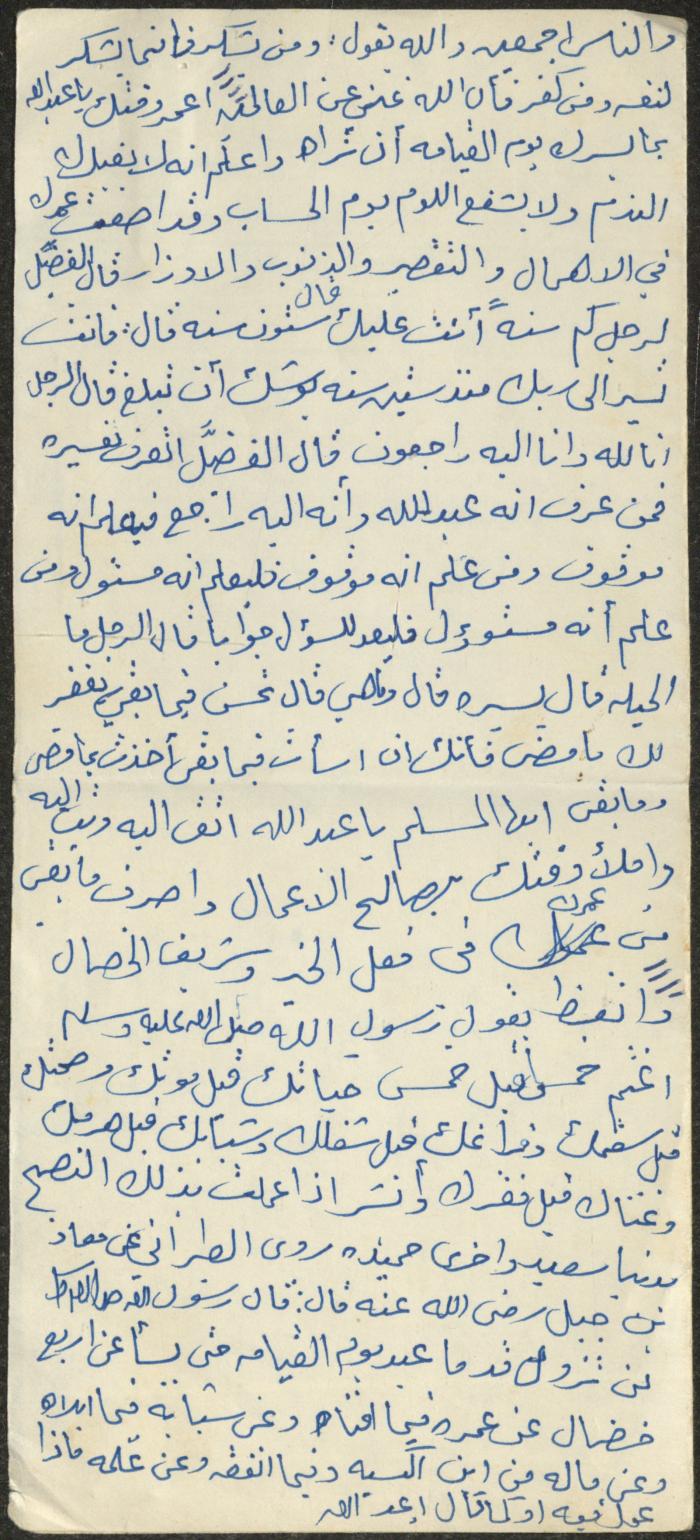 والناس اجمعين والله يقول: ومن يشكر فانما يشكر
لنفسه ومن كفر فأن الله غني عن العالمين اعمر وقتك يا عبد الله
بما يسرك يوم القيامه أن تراه واعلم انه لا ينفعك
الندم ولا يشفع اللوم يوم الحساب وقد اضعت عمرك
في الاهمال والتقصير والذنوب والاوزار قال الفضيل
لرجل كم سنةً أتت عليك قال ستون سنه قال: فانت
تسير الى ربك منذ ستين سنه يوشك أن تبلغ قال الرجل
انا لله وانا اليه راجعون قال الفضيَّل اتعرف تفسيره
فمن عرف انه عبد الله وأنه اليه راجع فيعلم انه
موقوف ومن علم انه موقوف فليعلم انه مسئول ومن
علم أنه مسئوول فليعد للسؤل جوابا قال الرجل ما
الحيله قال يسيره قال وماهي قال تحسن فيما بقي يغفر
لك ما مضى فأنك ان اسأت فيما بقي أخذت بما مضى
وما بقي ايها المسلم يا عبد الله اتق اليه وتب اليه
واملأ وقتك بصالح الاعمال واصرف ما بقي
من عمرك في فعل الخير وشريف الخصال
واتعظ بقول رسول الله صلى الله عليه وسلم
اغتنم خمساً قبل خمس حياتك قبل موتك وصحتك
قبل سقمك وفراغك قبل شغلك وشبابك قبل هرمك
وغناك قبل فقرك وأنشر اذا عملت بذلك النصح
بدنيا سعيده واخرى حميده روى الطبراني عن معاذ
بن جبل رضى الله عنه قال: قال رسول الله صلى الله عليه وسلم
لن تزول قدما عبد يوم القيامه حتى يسأل عن اربع
خصال عن عمره فيما افناه وعن شبابه فيما ابلاه
وعن ماله من اين اكتسبه وفيما انفقه وعن علمه ماذا
عمل فيه او كما قال